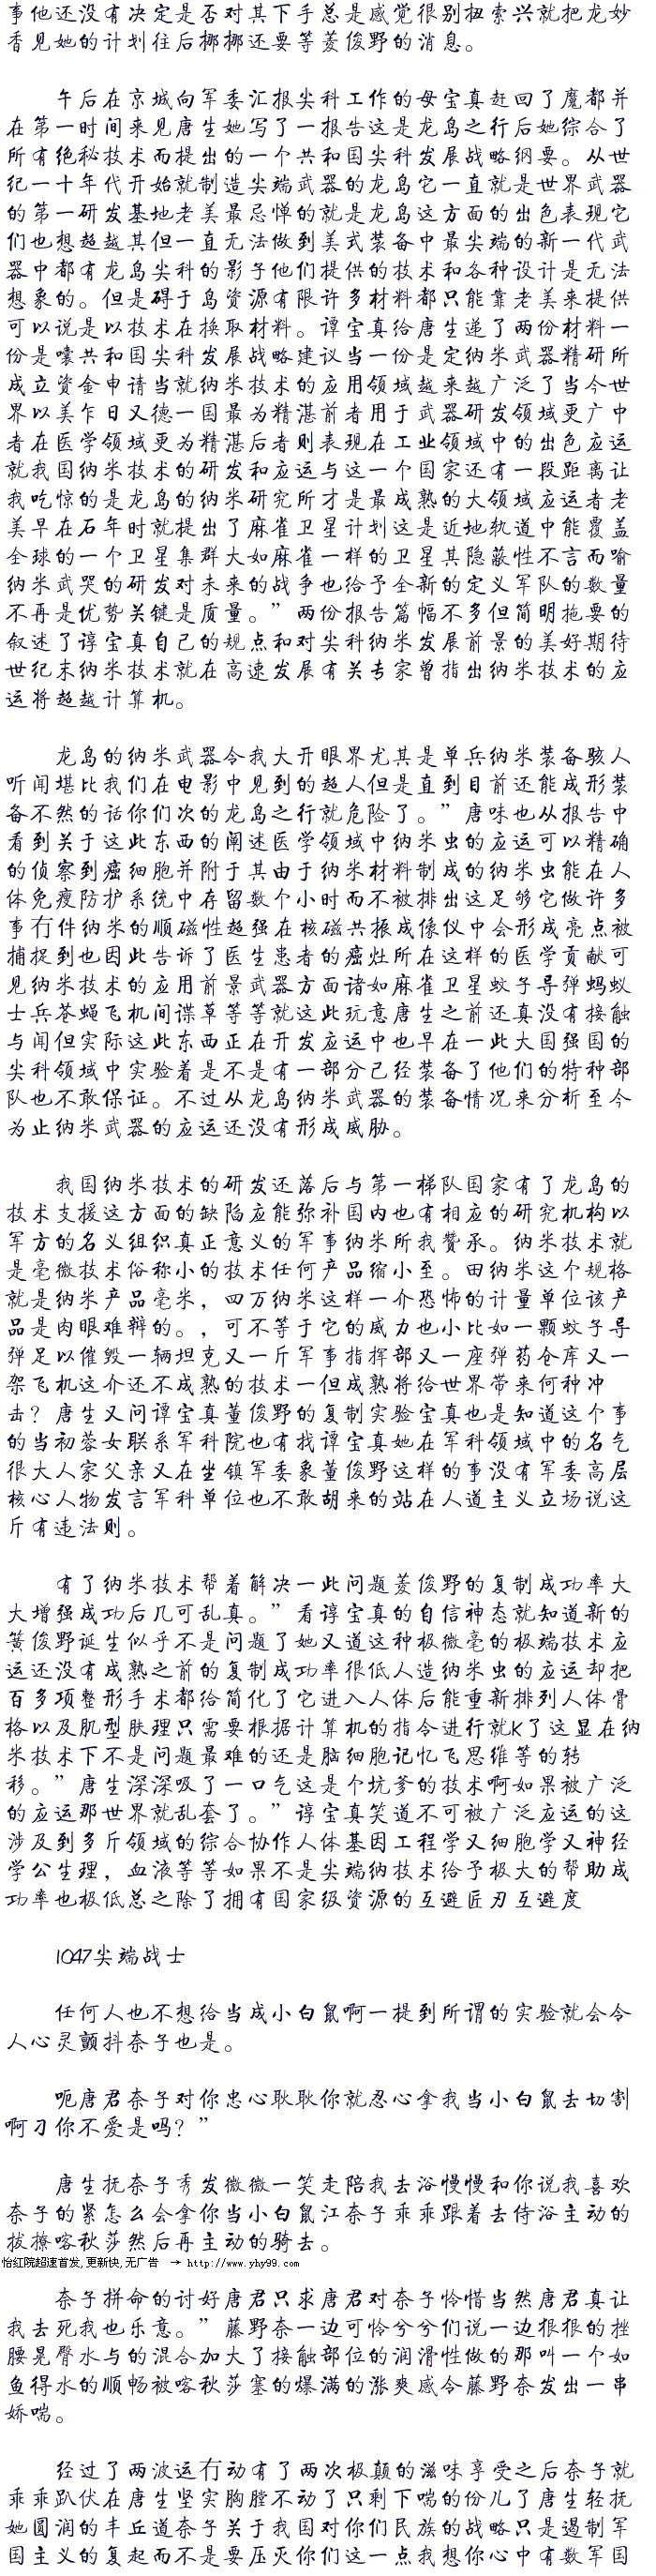 事他还没有决定是否对其下手总是感觉很别扭索兴就把龙妙
香见她的计划往后挪挪还要等菱俊野的消息。
午后在京城向军委汇报尖科工作的母宝真赶回了魔都并
在第一时间来见唐生她写了一报告这是龙岛之行后她综合了
所有绝秘技术而提出的一个共和国尖科发展战略纲要。从世
纪一十年代开始就制造尖端武器的龙岛它一直就是世界武器
的第一研发基地老美最忌惮的就是龙岛这方面的出色表现它
们也想超越其但一直无法做到美式装备中最尖端的新一代武
器中都有龙岛尖科的影子他们提供的技术和各种设计是无法
想象的。但是碍于岛资源有限许多材料都只能靠老美来提供
可以说是以技术在换取材料。谭宝真给唐生递了两份材料一
份是囔共和国尖科发展战略建议当一份是定纳米武器精研所
成立资金申请当就纳米技术的应用领域越来越广泛了当今世
界以美乍日又德一国最为精湛前者用于武器研发领域更广中
者在医学领域更为精湛后者则表现在工业领域中的出色应运
就我国纳米技术的研发和应运与这一个国家还有一段距离让
我吃惊的是龙岛的纳米研究所才是最成熟的大领域应运者老
美早在石年时就提出了麻雀卫星计划这是近地轨道中能覆盖
全球的一个卫星集群大如麻雀一样的卫星其隐蔽性不言而喻
纳米武哭的研发对未来的战争也给予全新的定义军队的数量
不再是优势关键是质量。”两份报告篇幅不多但简明拖要的
叙述了谆宝真自己的规点和对尖科纳米发展前景的美好期待
世纪末纳米技术就在高速发展有关专家曾指出纳米技术的应
运将超越计算机。
龙岛的纳米武器令我大开眼界尤其是单兵纳米装备骇人
听闻堪比我们在电影中见到的超人但是直到目前还能成形装
备不然的话你们次的龙岛之行就危险了。”唐味也从报告中
看到关于这此东西的阐述医学领域中纳米虫的应运可以精确
的侦察到癌细胞并附于其由于纳米材料制成的纳米虫能在人
体免疫防护系统中存留数个小时而不被排出这足够它做许多
事冇件纳米的顺磁性超强在核磁共振成像仪中会形成亮点被
捕捉到也因此告诉了医生患者的癌灶所在这样的医学贡献可
见纳米技术的应用前景武器方面诸如麻雀卫星蚊子导弹蚂蚁
士兵苍蝇飞机间谍草等等就这此玩意唐生之前还真没有接触
与闻但实际这此东西正在开发应运中也早在一此大国强国的
尖科领域中实验着是不是有一部分己经装备了他们的特种部
队也不敢保证。不过从龙岛纳米武器的装备情况来分析至今
为止纳米武器的应运还没有形成威胁。
我国纳米技术的研发还落后与第一梯队国家有了龙岛的
技术支援这方面的缺陷应能弥补国内也有相应的研究机构以
军方的名义组织真正意义的军事纳米所我赞承。纳米技术就
是毫微技术俗称小的技术任何产品缩小至。田纳米这个规格
就是纳米产品毫米，四万纳米这样一介恐怖的计量单位该产
品是肉眼难辩的。，可不等于它的威力也小比如一颗蚊子导
弹足以催毁一辆坦克又一斤军事指挥部又一座弹药仓库又一
架飞机这介还不成熟的技术一但成熟将给世界带来何种冲
击？唐生又问谭宝真董俊野的复制实验宝真也是知道这个事
的当初蓉女联系军科院也有找谭宝真她在军科领域中的名气
很大人家父亲又在坐镇军委象董俊野这样的事没有军委高层
核心人物发言军科单位也不敢胡来的站在人道主义立场说这
斤有违法则。
有了纳米技术帮着解决一此问题菱俊野的复制成功率大
大增强成功后几可乱真。”看谆宝真的自信神态就知道新的
簧俊野诞生似乎不是问题了她又道这种极微毫的极端技术应
运还没有成熟之前的复制成功率很低人造纳米虫的应运却把
百多项整形手术都给简化了它进入人体后能重新排列人体骨
格以及肌型肤理只需要根据计算机的指令进行就K了这显在纳
米技术下不是问题最难的还是脑细胞记忆飞思维等的转
移。”唐生深深吸了一口气这是个坑爹的技术啊如果被广泛
的应运那世界就乱套了。”谆宝真笑道不可被广泛应运的这
涉及到多斤领域的综合协作人体基因工程学又细胞学又神经
学公生理，血液等等如果不是尖端纳技术给予极大的帮助成
功率也极低总之除了拥有国家级资源的互避匠刃互避度
1047尖端战士
任何人也不想给当成小白鼠啊一提到所谓的实验就会令
人心灵颤抖奈子也是。
呃唐君奈子对你忠心耿耿你就忍心拿我当小白鼠去切割
啊刁你不爱是吗？”
唐生抚奈子秀发微微一笑走陪我去浴慢慢和你说我喜欢
奈子的紧怎么会拿你当小白鼠江奈子乖乖跟着去侍浴主动的
拔撩喀秋莎然后再主动的骑去。
怡红院超速首发,更新快,无广告 → http://www.yhy99.com
奈子拼命的讨好唐君只求唐君对奈子怜惜当然唐君真让
我去死我也乐意。”藤野奈一边可怜兮兮们说一边狠狠的挫
腰晃臀水与的混合加大了接触部位的润滑性做的那叫一个如
鱼得水的顺畅被喀秋莎塞的爆满的涨爽感令藤野奈发出一串
娇喘。
经过了两波运冇动有了两次极颠的滋味享受之后奈子就
乖乖趴伏在唐生坚实胸膛不动了只剩下喘的份儿了唐生轻抚
她圆润的丰丘道奈子关于我国对你们民族的战略只是遏制军
国主义的复起而不是要压灭你们这一点我想你心中有数军国